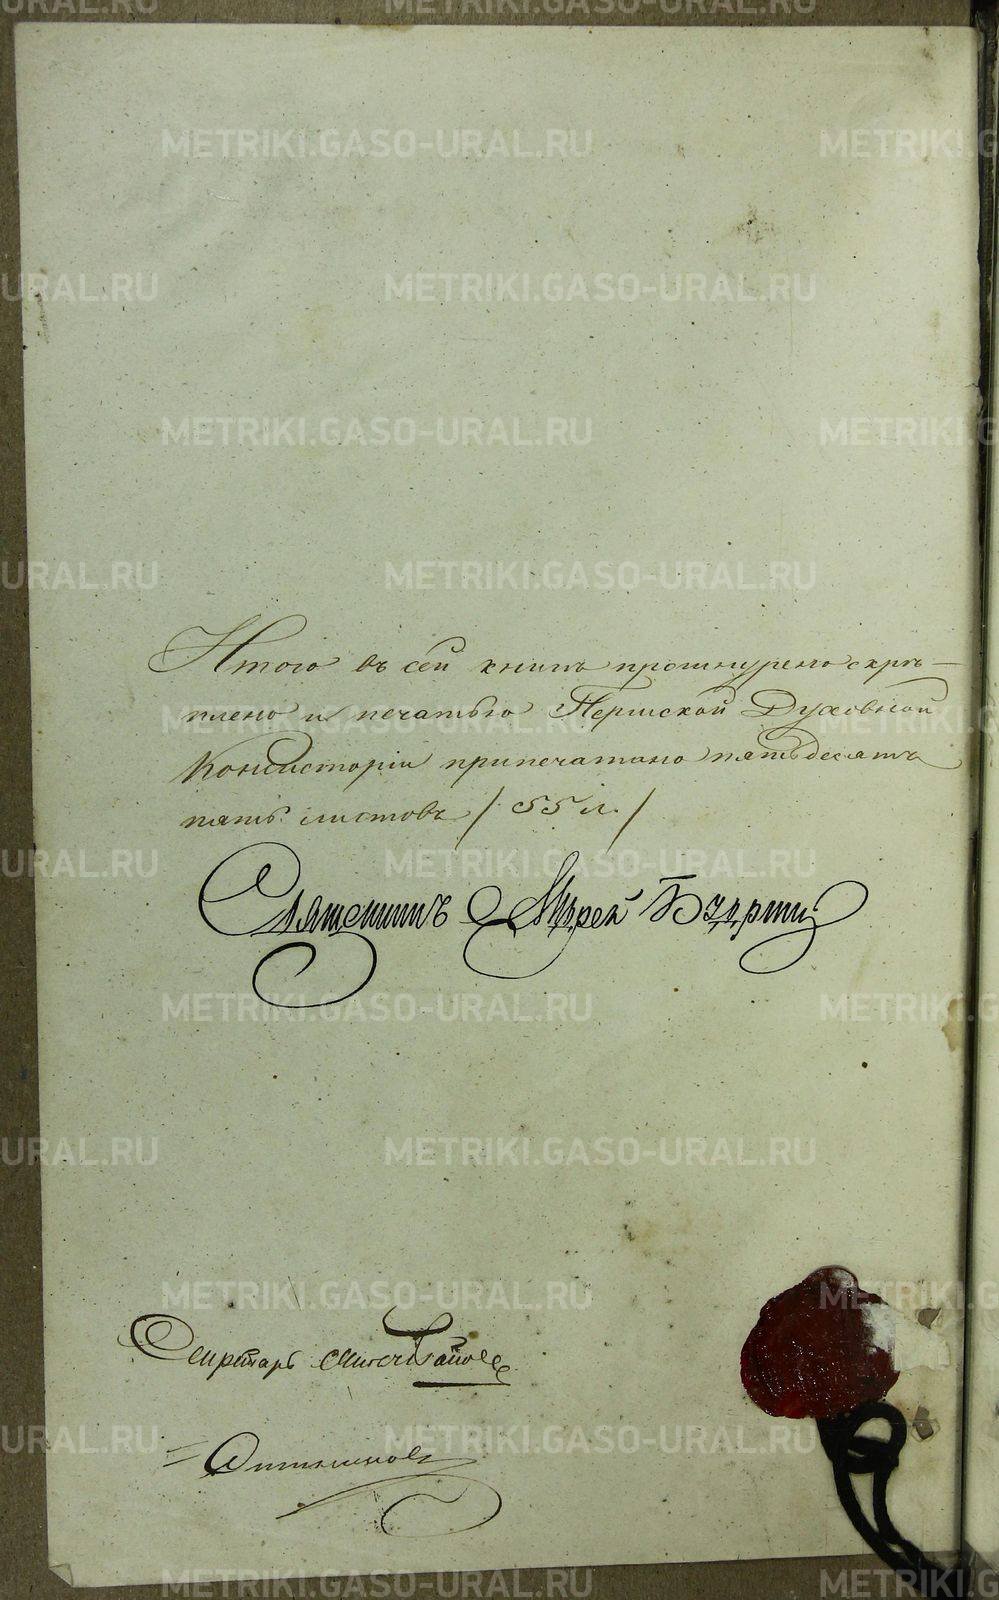 Итого въ сей книгѣ прошнурено скрѣ-
плено и печатью Пермской Духовной
Консисторіи припечатано пятьдесятъ
пять листовъ / 55 л. /
Священникъ Андрей Будрин
Секретарь
METRIKI.GASO-URAL.RU